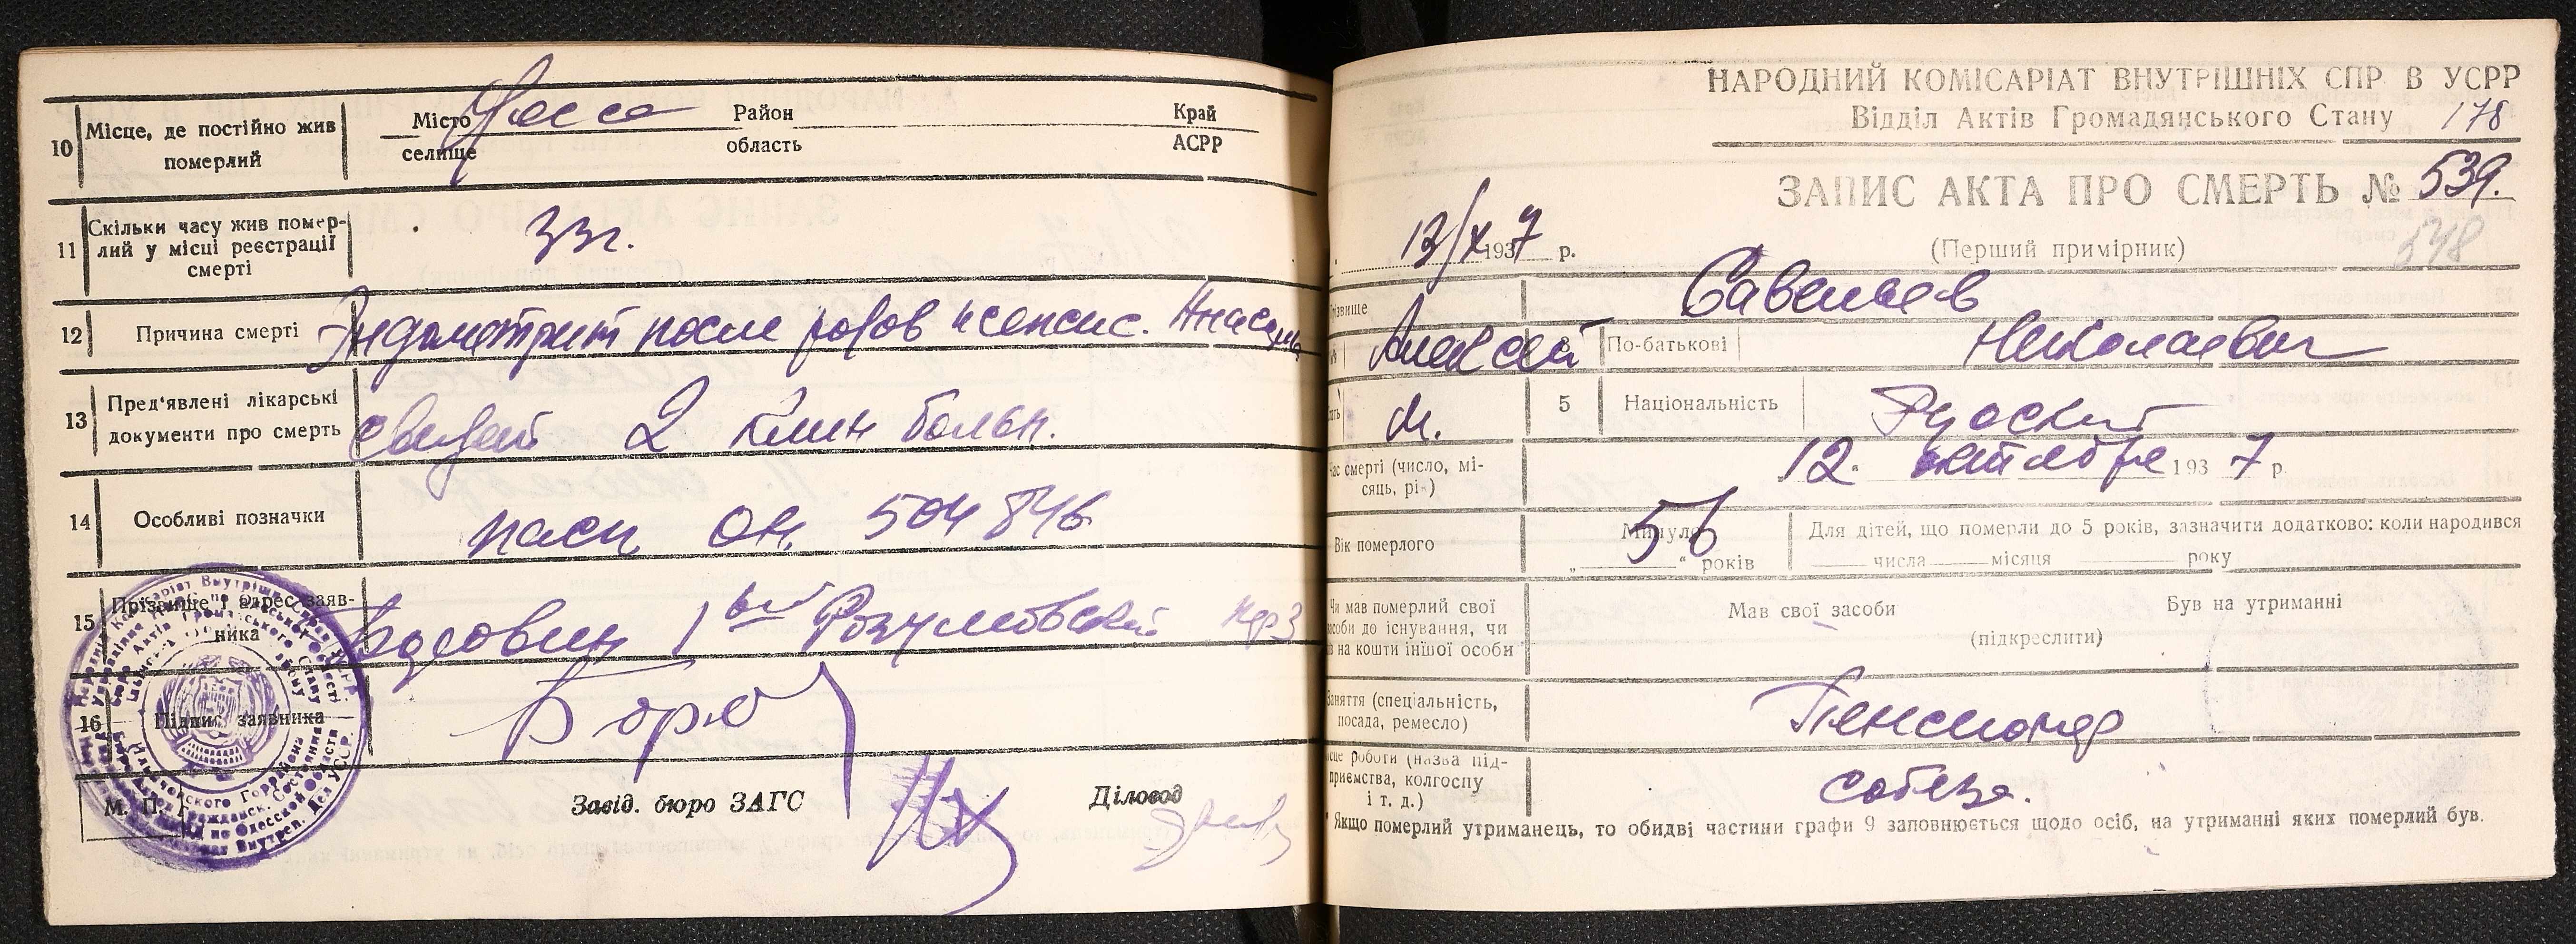 10 Місце, де постійно жив померлий
Місто селище Одесса Район область Край АСРР
11 Скільки часу жив померлий у місці реєстрації смерті
33 г.
12 Причина смерті
Эндометрит после родов и сепсис.
13 Пред'явлені лікарські документи про смерть
2 клин больн.
14 Особливі позначки
пасп. 504846
15 Прізвище і адрес заявника
16 Підпис заявника
М. П.
Завід. бюро ЗАГС
Діловод
НАРОДНИЙ КОМІСАРІАТ ВНУТРІШНІХ СПР В УСРР
Відділ Актів Громадянського Стану 178
ЗАПИС АКТА ПРО СМЕРТЬ № 539.
548
13/X 1937 р.
(Перший примірник)
Савельев
Алексей По-батькові Николаевич
М. 5 Національність Русский
час смерті (число, місяць, рік)
12. октября 1937 р.
Вік померлого
Минуло 56 років
Для дітей, що померли до 5 років, зазначити додатково: коли народився
числа місяця року
Чи мав померлий свої засоби до існування, чи на кошти іншої особи
Мав свої засоби Був на утриманні
(підкреслити)
Заняття (спеціальність, посада, ремесло)
Пенсионер
місце роботи (назва підприємства, колгоспу і т. д.)
собеза.
* Якщо померлий утриманець, то обидві частини графи 9 заповнюється щодо осіб, на утриманні яких померлий був.